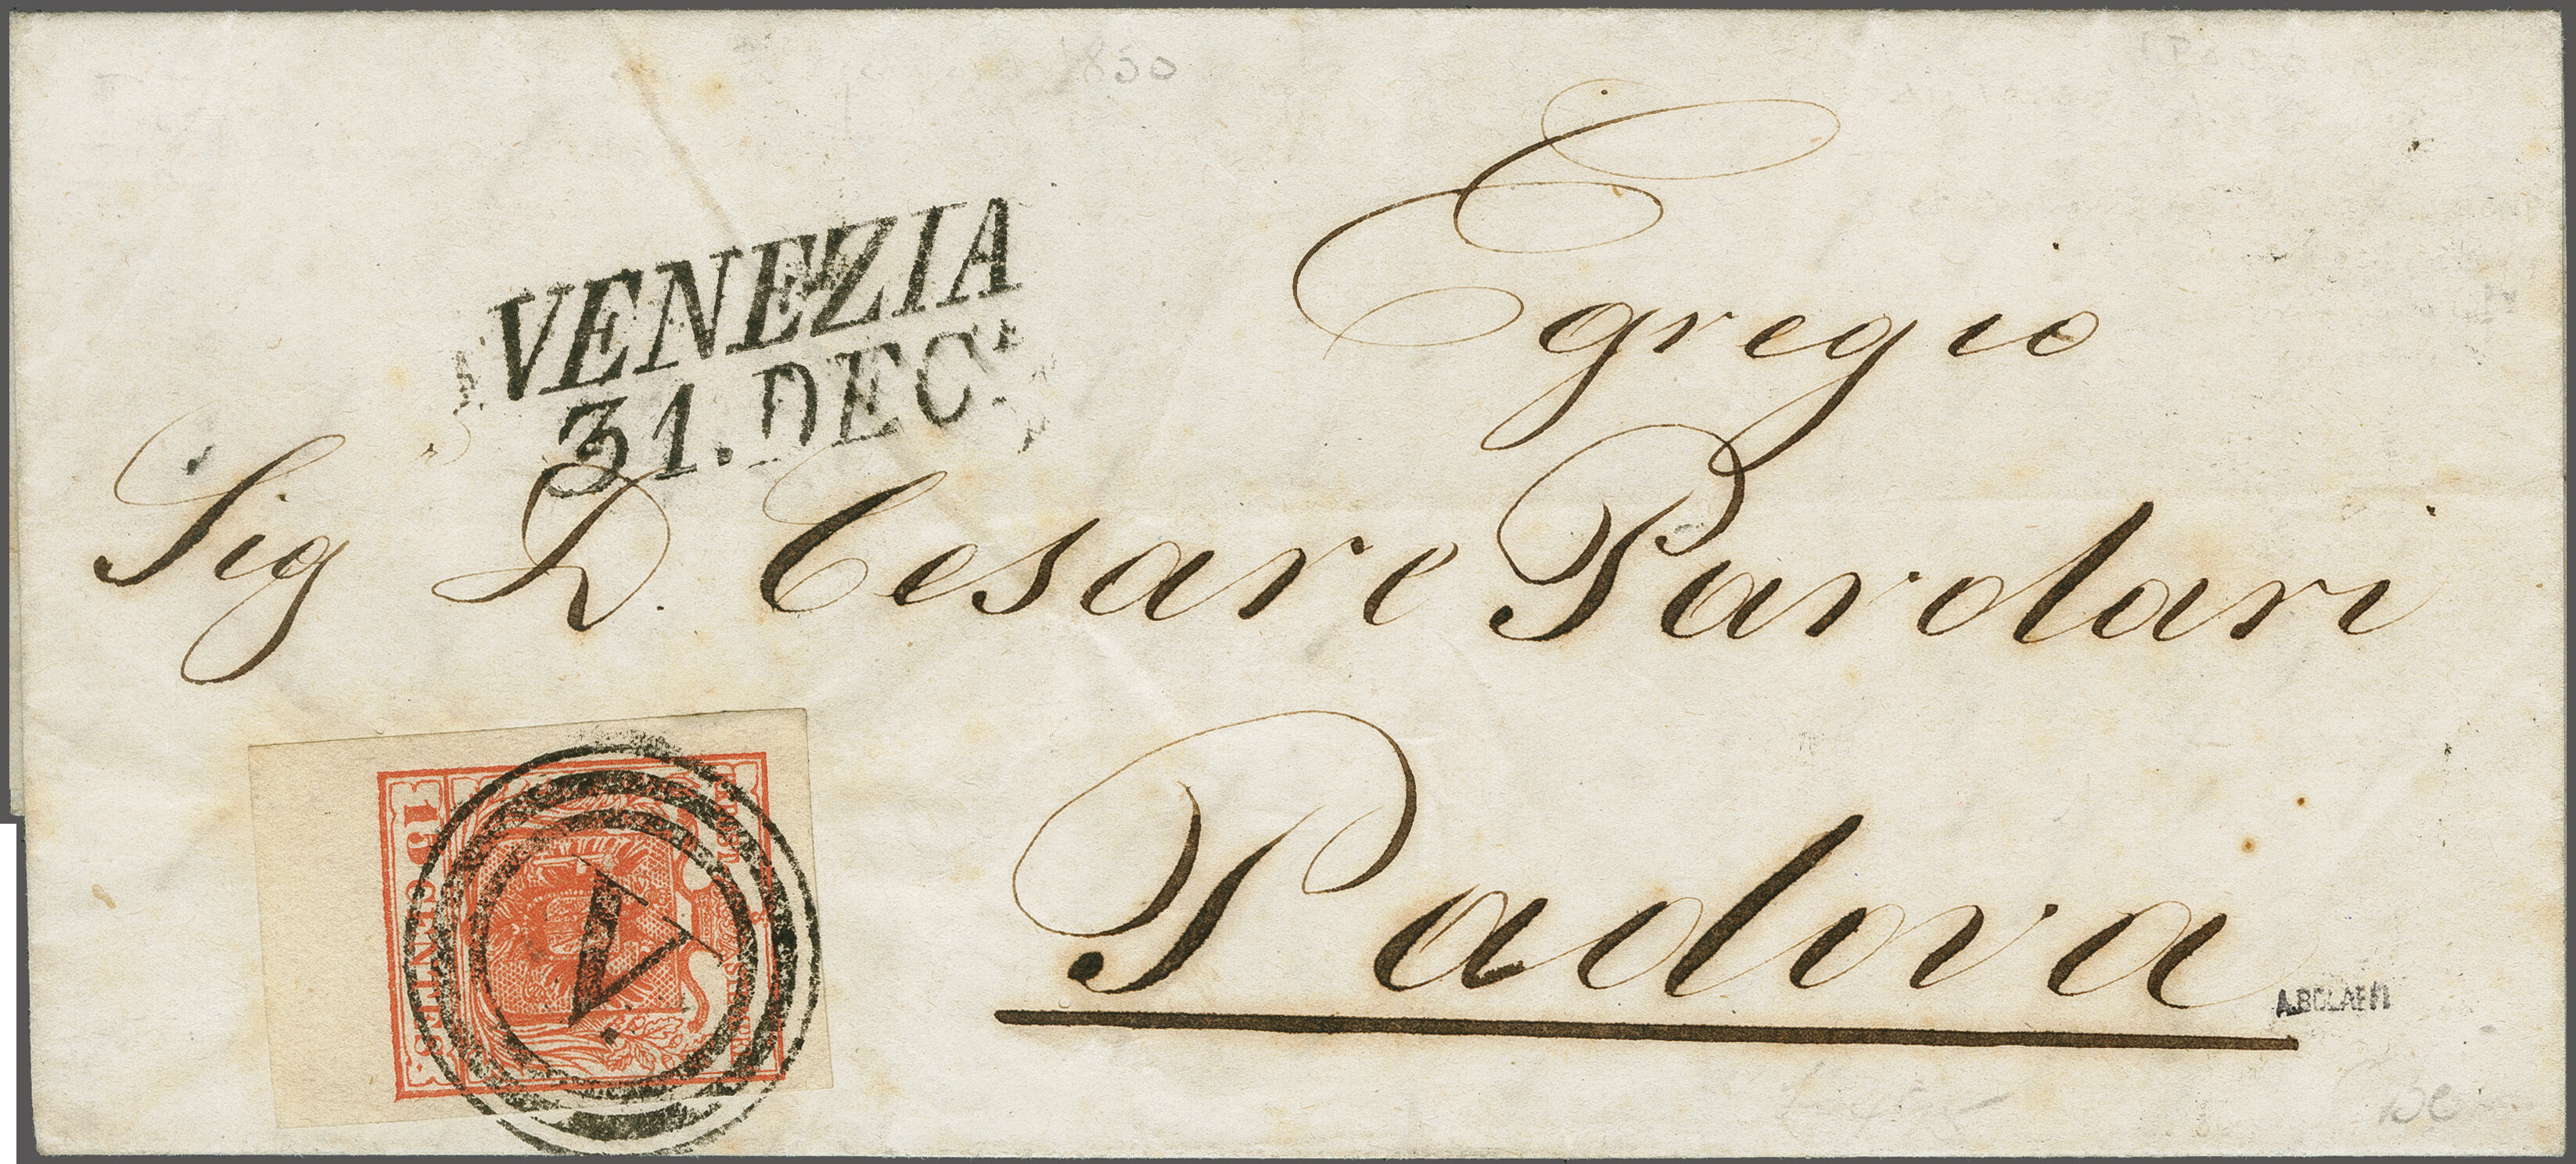 1850
VENEZIA
31. DEC
Egregio
Sig D. Cesare Parolari
Padova
15 CENTES
V.
A.BOLAFFI